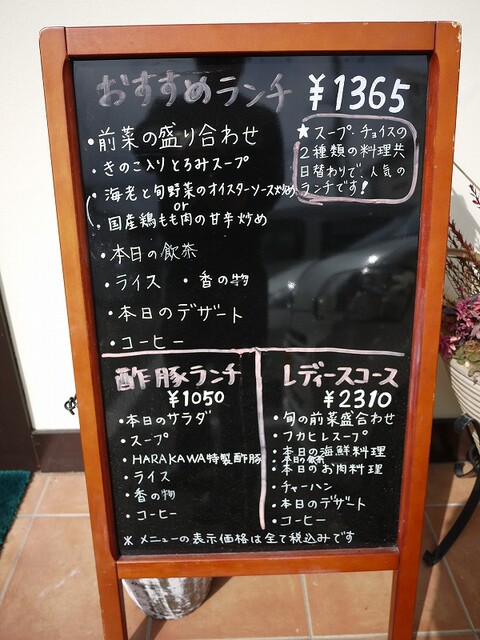 おすすめランチ ¥1365
・前菜の盛り合わせ
・きのこ入りとろみスープ
・海老と旬野菜のオイスターソース炒め
or
・国産鶏もも肉の甘辛炒め
・本日の飲茶
・ライス ・香の物
・本日のデザート
・コーヒー
★スープ、チョイスの
2種類の料理共
日替わりで、人気の
ランチです!
酢豚ランチ
¥1050
・本日のサラダ
・スープ
・HARAKAWA特製酢豚
・ライス
・香の物
・コーヒー
レディースコース
¥2310
・旬の前菜盛合わせ
・フカヒレスープ
・本日の海鮮料理
・本日の飲茶
・本日のお肉料理
・チャーハン
・本日のデザート
・コーヒー
※メニューの表示価格は全て税込みです